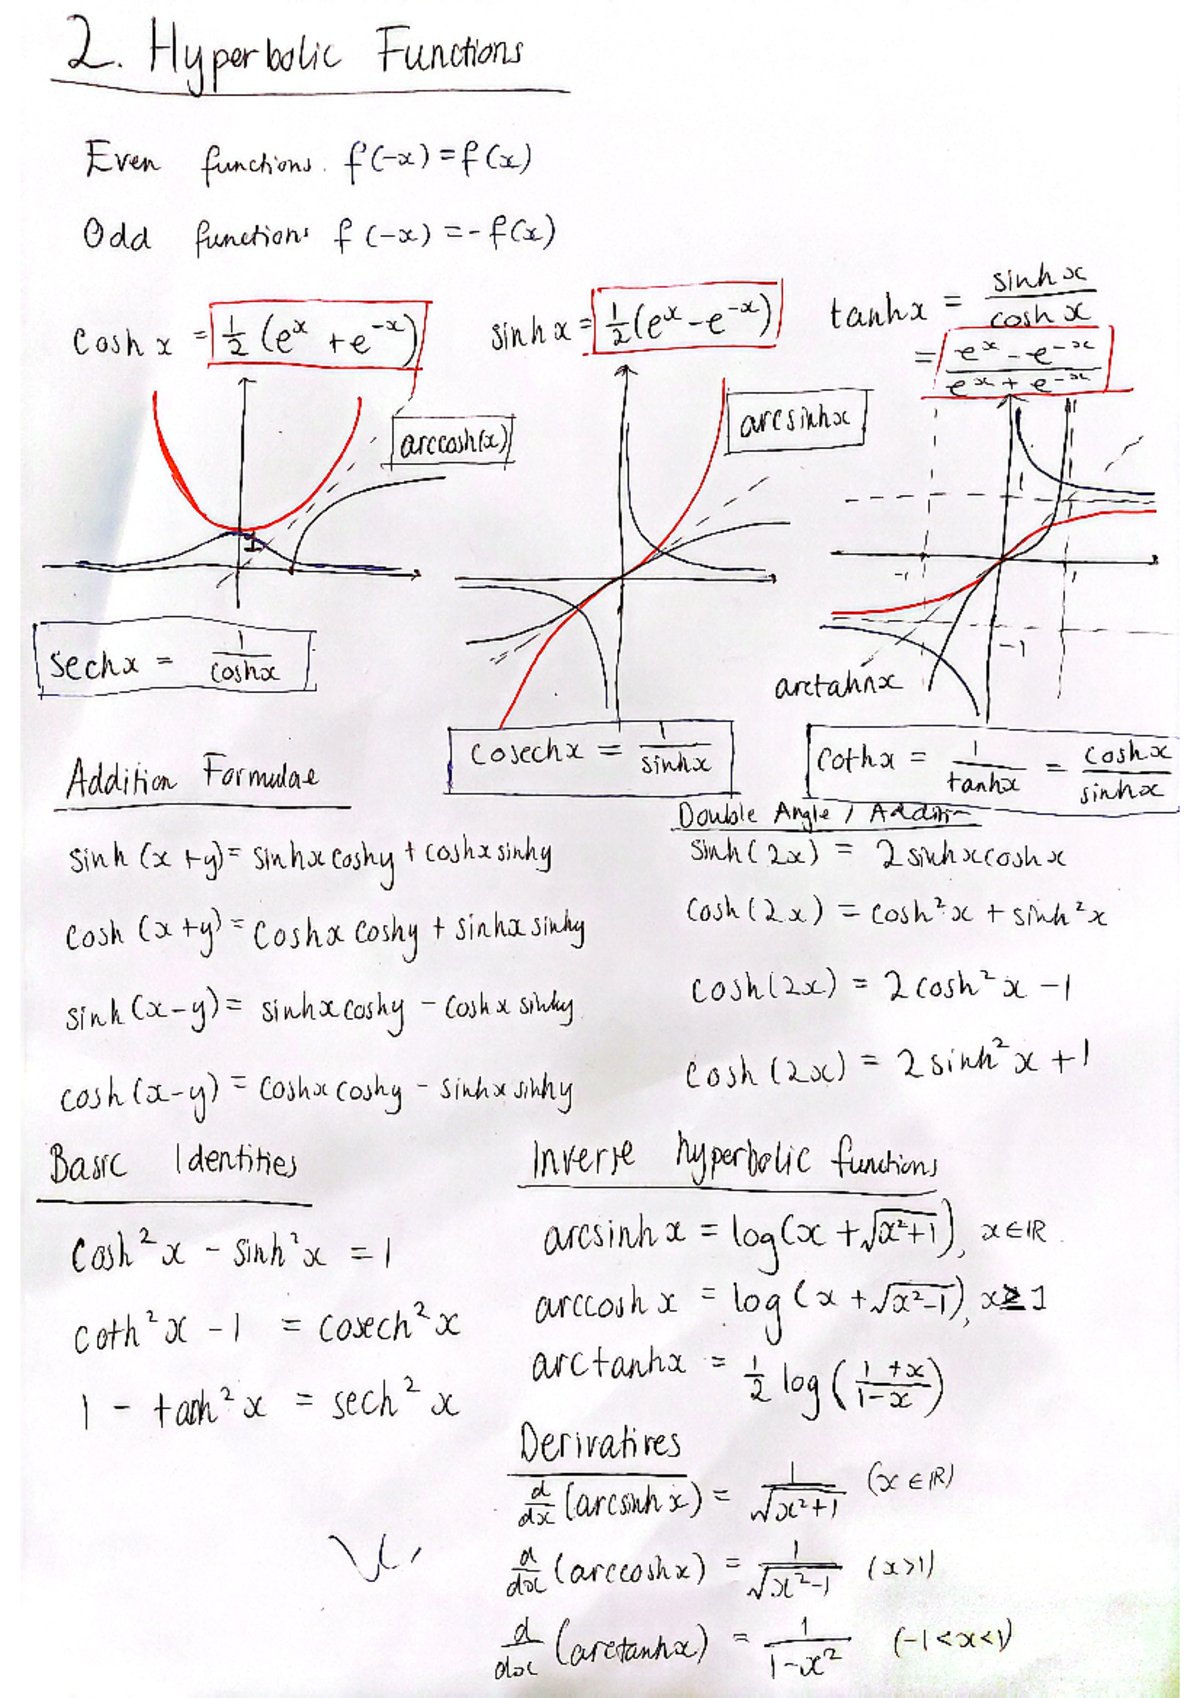 2. Hyperbolic Functions
Even functions. f(-x)=f(x)
Odd functions f(-x)=-f(x)
cosh x = ½ (eˣ + e⁻ˣ)
sinh x = ½(eˣ - e⁻ˣ)
tanh x = sinh x / cosh x
= (eˣ - e⁻ˣ) / (eˣ + e⁻ˣ)
arccosh(x)
arcsinhx
1
1
-1
1
-1
arctahnx
sechx = 1 / coshx
cosechx = 1 / sinhx
cothx = 1 / tanhx = coshx / sinhx
Addition Formulae
sinh (x+y) = sinhxcoshy + coshxsinhy
cosh (x+y) = coshx coshy + sinhx sinhy
sinh (x-y) = sinhxcoshy - coshx sinhy
cosh (x-y) = coshx coshy - sinhx sinhy
Double Angle / Addition
sinh(2x) = 2sinhxcoshx
cosh(2x) = cosh²x + sinh²x
cosh(2x) = 2cosh²x -1
cosh(2x) = 2sinh²x +1
Basic Identities
cosh²x - sinh²x = 1
coth²x -1 = cosech²x
1 - tanh²x = sech²x
Inverse hyperbolic functions
arcsinhx = log(x + √(x²+1)), x∈ℝ.
arccoshx = log(x + √(x²-1)), x≥1
arctanhx = ½ log((1+x)/(1-x))
Derivatives
d/dx (arcsinhx) = 1/√(x²+1) (x∈ℝ)
d/dx (arccoshx) = 1/√(x²-1) (x>1)
d/dx (arctanhx) = 1/(1-x²) (-1<x<1)